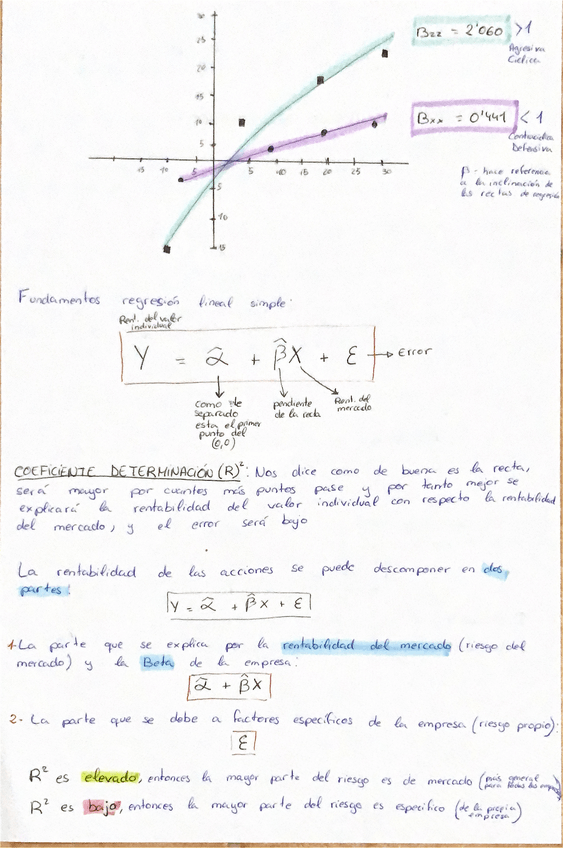 30
25
20
15
10
5
15 10 5 5 10 15 20 25 30
5
10
15
βzz = 2'060 >1
Agresiva
Cíclica
βxx = 0'441 < 1
Contracíclica
Defensiva
β - hace referencia
a la inclinación de
las rectas de regresión
Fundamentos regresión lineal simple:
Rent. del valor
individual
Y = α̂ + β̂X + ε → Error
como de
separado
esta el primer
punto del
(0,0)
pendiente
de la recta
Rent. del
mercado
COEFICIENTE DETERMINACIÓN (R)²: Nos dice como de buena es la recta,
será mayor por cuantos más puntos pase y por tanto mejor se
explicará la rentabilidad del valor individual con respecto la rentabilidad
del mercado, y el error será bajo
La rentabilidad de las acciones se puede descomponer en dos
partes:
Y = α̂ + β̂X + ε
1- La parte que se explica por la rentabilidad del mercado (riesgo del
mercado) y la Beta de la empresa:
α̂ + β̂X
2- La parte que se debe a factores específicos de la empresa (riesgo propio):
ε
R² es elevado, entonces la mayor parte del riesgo es de mercado (más general
para todas las empresas)
R² es bajo, entonces la mayor parte del riesgo es específico (de la propia
empresa)